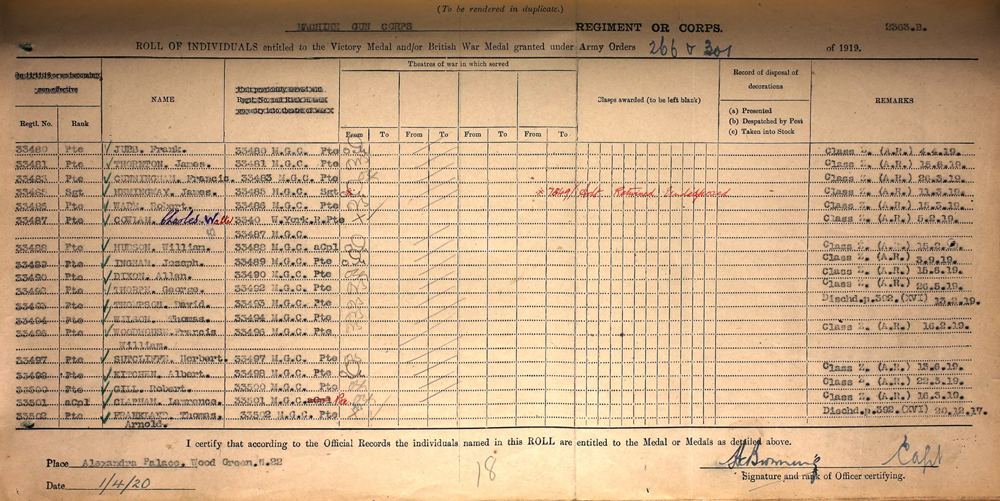 (To be rendered in duplicate.)
MACHINE GUN CORPS REGIMENT OR CORPS. 2363.B.
ROLL OF INDIVIDUALS entitled to the Victory Medal and/or British War Medal granted under Army Orders 266 & 301 of 1919.
Theatres of war in which served
NAME
Clasps awarded (to be left blank)
Record of disposal of decorations
(a) Presented
(b) Despatched by Post
(c) Taken into Stock
REMARKS
Regtl. No. Rank
From To From To From To From To
33480 Pte JUBB. Frank. 33480 M.G.C. Pte Class Z. (A.R.) 4.4.19.
33481 Pte THORNTON. James. 33481 M.G.C. Pte Class Z. (A.R.)
33483 Pte CUNNINGHAM. Francis. 33483 M.G.C. Pte Class Z. (A.R.)
33485 Sgt HEMINGWAY. James. 33485 M.G.C. Sgt Class Z. (A.R.)
33486 Pte Robert. 33486 M.G.C. Pte Class Z. (A.R.)
33487 Pte COWLAM. Charles. 3340 W.York.R.Pte Class Z. (A.R.) 5.2.19.
33487 M.G.C.
33488 Pte HUDSON. William. 33488 M.G.C. aCpl Class Z. (A.R.)
33489 Pte INGHAM. Joseph. 33489 M.G.C. Pte Class Z. (A.R.) 3.9.19.
33490 Pte DIXON. Allan. 33490 M.G.C. Pte Class Z. (A.R.) 15.6.19.
33492 Pte THORPE. George. 33492 M.G.C. Pte Class Z. (A.R.) 26.5.19.
33493 Pte THOMPSON. David. 33493 M.G.C. Pte Dischd.p.392.(XVI) 13.2.19.
33494 Pte WILSON. Thomas. 33494 M.G.C. Pte
33496 Pte WOODHOUSE. Francis 33496 M.G.C. Pte Class Z. (A.R.) 16.2.19.
William.
33497 Pte SUTCLIFFE. Herbert. 33497 M.G.C. Pte
33498 Pte KITCHEN. Albert. 33498 M.G.C. Pte Class Z. (A.R.)
33500 Pte GILL. Robert. 33500 M.G.C. Pte Class Z. (A.R.) 22.3.19.
33501 aCpl CLAPHAM. Lawrence. 33501 M.G.C. aCpl Pte Class Z. (A.R.) 16.3.19.
33502 Pte FRANKLAND. Thomas 33502 M.G.C. Pte Dischd.p.392.(XVI) 20.12.17.
Arnold.
I certify that according to the Official Records the individuals named in this ROLL are entitled to the Medal or Medals as detailed above.
Place Alexandra Palace. Wood Green.N.22 18 Capt
Signature and rank of Officer certifying.
Date 1/4/20